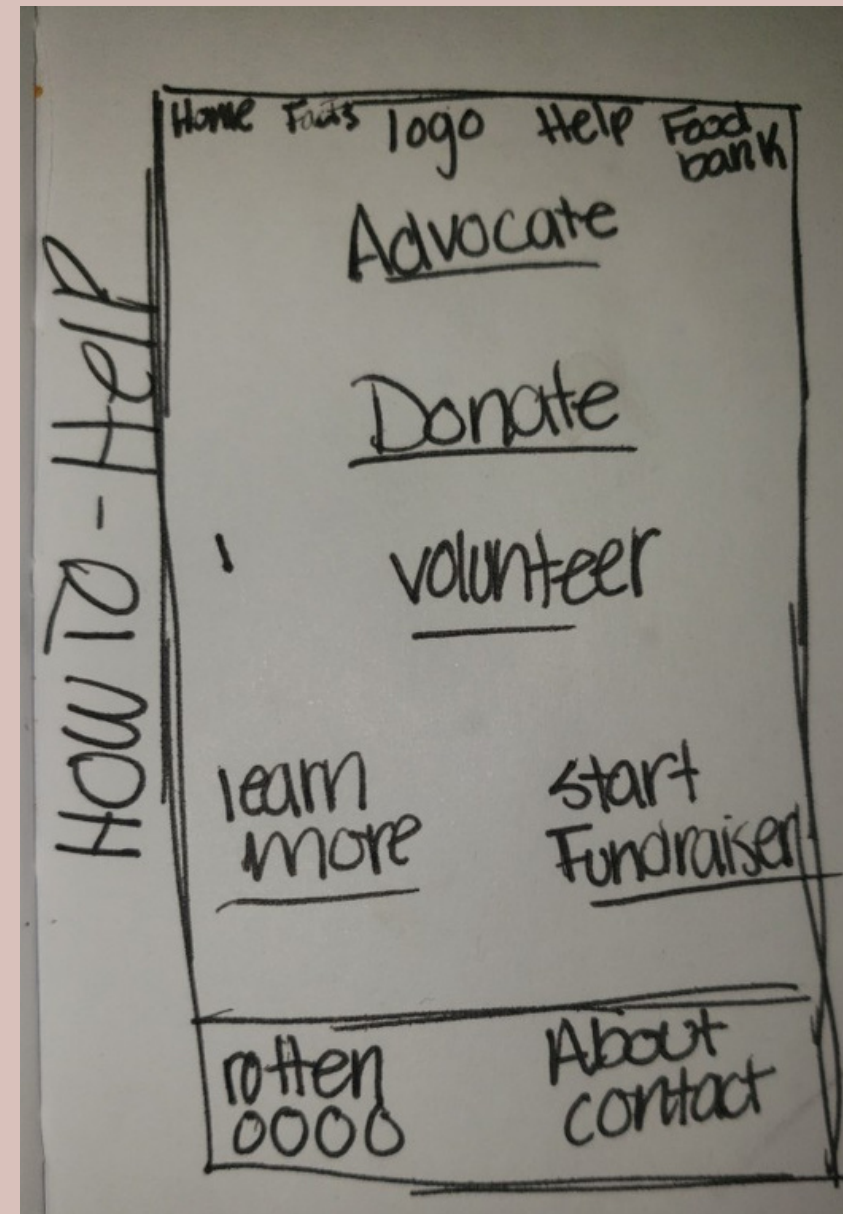 How To - Help
Home Facts logo Help Food bank
Advocate
Donate
volunteer
learn
more
start
Fundraiser
rotten
0000
About
contact